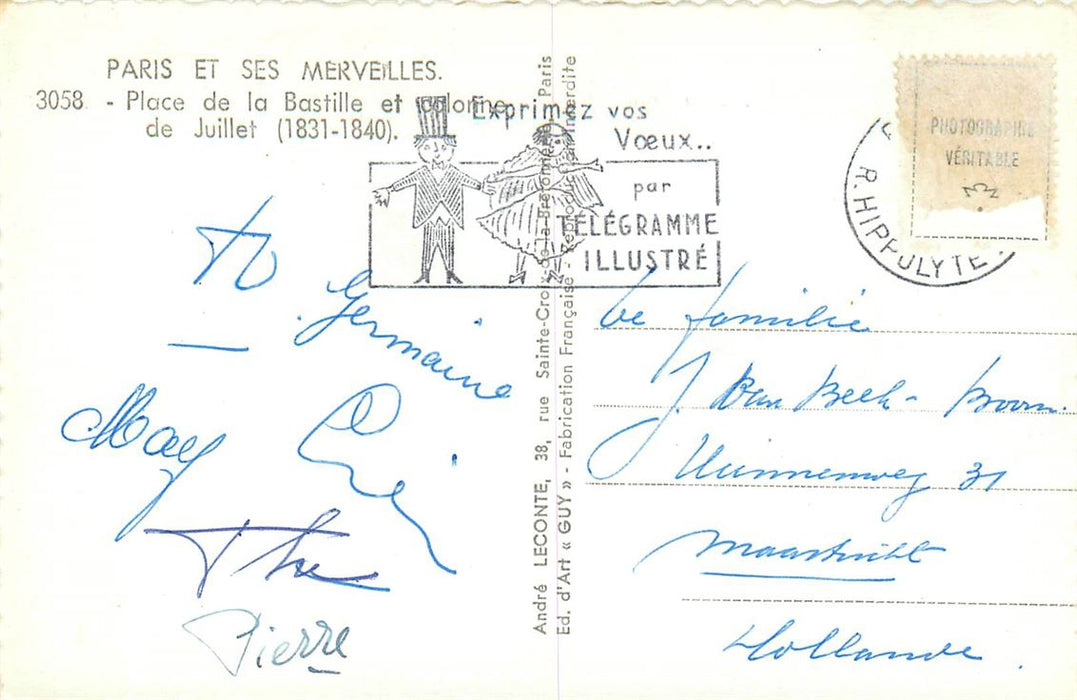 PARIS ET SES MERVEILLES.
3058 - Place de la Bastille et colonne
de Juillet (1831-1840).
Exprimez vos
Vœux..
par
TÉLÉGRAMME
ILLUSTRÉ
PHOTOGRAPHIE
VÉRITABLE
R. HIPPOLYTE
Germaine
May
Pierre
André LECONTE, 38, rue Sainte-Croix-de-la-Bretonnerie, Paris
Ed. d'Art « GUY » - Fabrication Française - Reproduction Interdite
familie
J. Van Beek - Boom.
31
Maastricht
Hollande.